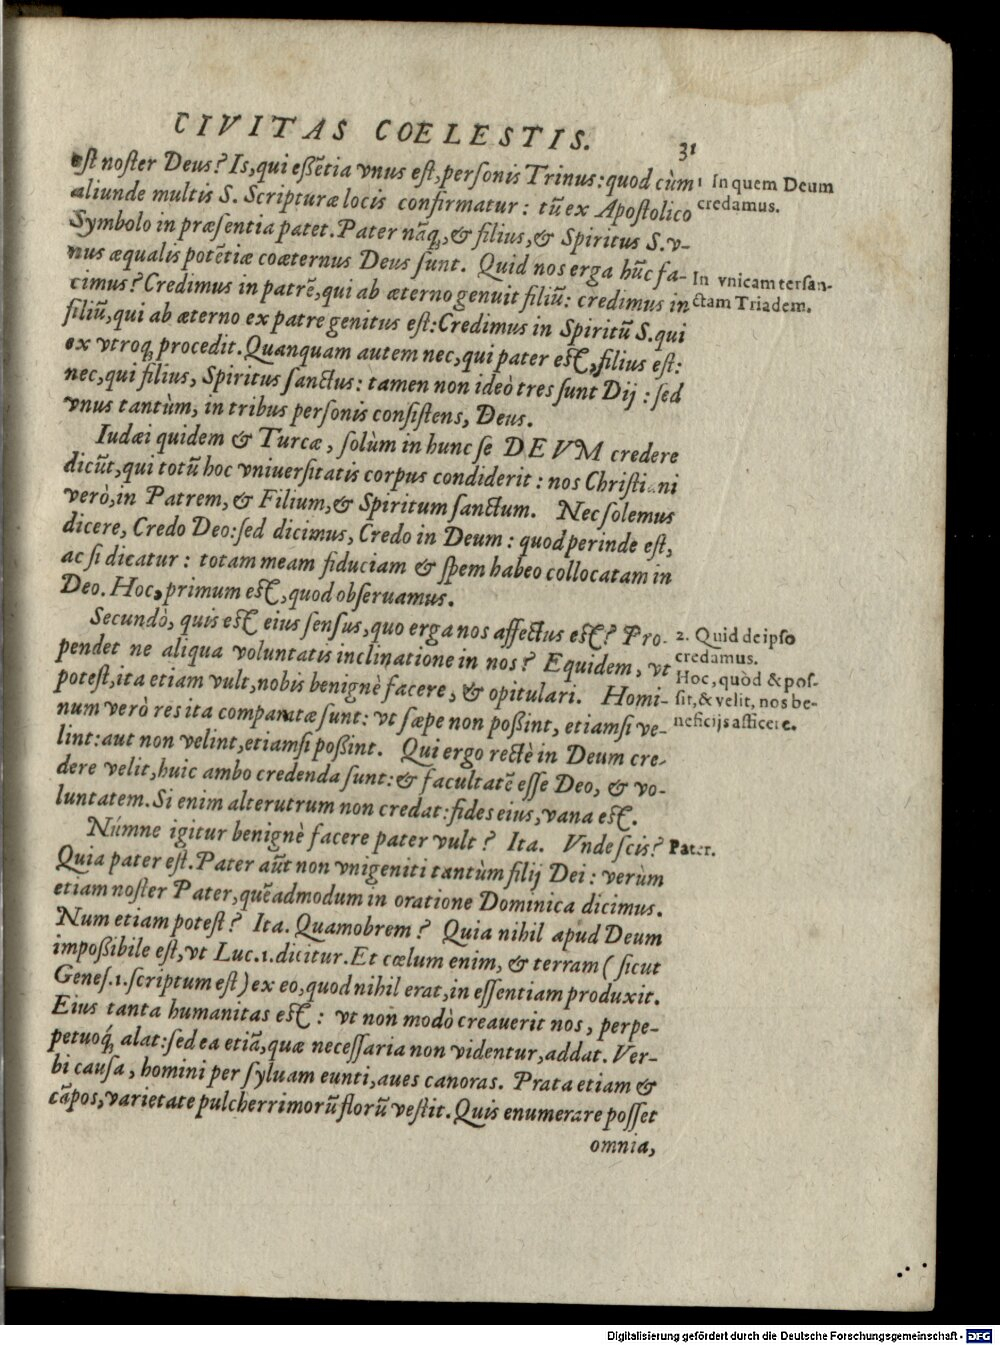 CIVITAS COELESTIS.
31
eſt noſter Deus? Is, qui eßẽtia vnus eſt, perſonis Trinus: quod cùm
aliunde multis S. Scripturæ locis confirmatur: tũ ex Apoſtolico
Symbolo in præſentia patet. Pater nãq;, & filius, & Spiritus S. v-
nus æqualis potẽtiæ coæternus Deus ſunt. Quid nos erga hũc fa-
cimus? Credimus in patrẽ, qui ab æterno genuit filiũ: credimus in
filiũ, qui ab æterno ex patre genitus eſt: Credimus in Spiritũ S. qui
ex vtroq; procedit. Quanquam autem nec, qui pater eſt, filius eſt:
nec, qui filius, Spiritus ſanctus: tamen non ideò tres ſunt Dij: ſed
vnus tantùm, in tribus perſonis conſiſtens, Deus.
Iudæi quidem & Turcæ, ſolùm in hunc ſe DEVM credere
dicũt, qui totũ hoc vniuerſitatis corpus condiderit: nos Chriſtiani
verò, in Patrem, & Filium, & Spiritum ſanctum. Nec ſolemus
dicere, Credo Deo: ſed dicimus, Credo in Deum: quod perinde eſt,
ac ſi dicatur: totam meam fiduciam & ſpem habeo collocatam in
Deo. Hoc, primum eſt, quod obſeruamus.
Secundò, quis eſt eius ſenſus, quo erga nos affectus eſt? Pro-
pendet ne aliqua voluntatis inclinatione in nos? Equidem, vt
poteſt, ita etiam vult, nobis benignè facere, & opitulari. Homi-
num verò res ita comparatæ ſunt: vt ſæpe non poßint, etiamſi ve-
lint: aut non velint, etiamſi poßint. Qui ergo rectè in Deum cre-
dere velit, huic ambo credenda ſunt: & facultatẽ eſſe Deo, & vo-
luntatem. Si enim alterutrum non credat: fides eius, vana eſt.
Númne igitur benignè facere pater vult? Ita. Vnde ſcis?
Quia pater eſt. Pater aũt non vnigeniti tantùm filij Dei: verùm
etiam noſter Pater, quẽadmodum in oratione Dominica dicimus.
Num etiam poteſt? Ita. Quamobrem? Quia nihil apud Deum
impoßibile eſt, vt Luc. 1. dicitur. Et cœlum enim, & terram (ſicut
Geneſ. 1. ſcriptum eſt) ex eo, quod nihil erat, in eſſentiam produxit.
Eius tanta humanitas eſt: vt non modò creauerit nos, perpe-
petuoq́; alat: ſed ea etiã, quæ neceſſaria non videntur, addat. Ver-
bi cauſa, homini per ſyluam eunti, aues canoras. Prata etiam &
cãpos, varietate pulcherrimorũ florũ veſtit. Quis enumerare poſſet
omnia,
1 In quem Deum
credamus.
In vnicam terſan-
ctam Triadem.
2. Quid de ipſo
credamus.
Hoc, quòd & poſ-
ſit, & velit, nos be-
neficijs afficere.
Pater.
Digitalisierung gefördert durch die Deutsche Forschungsgemeinschaft - DFG